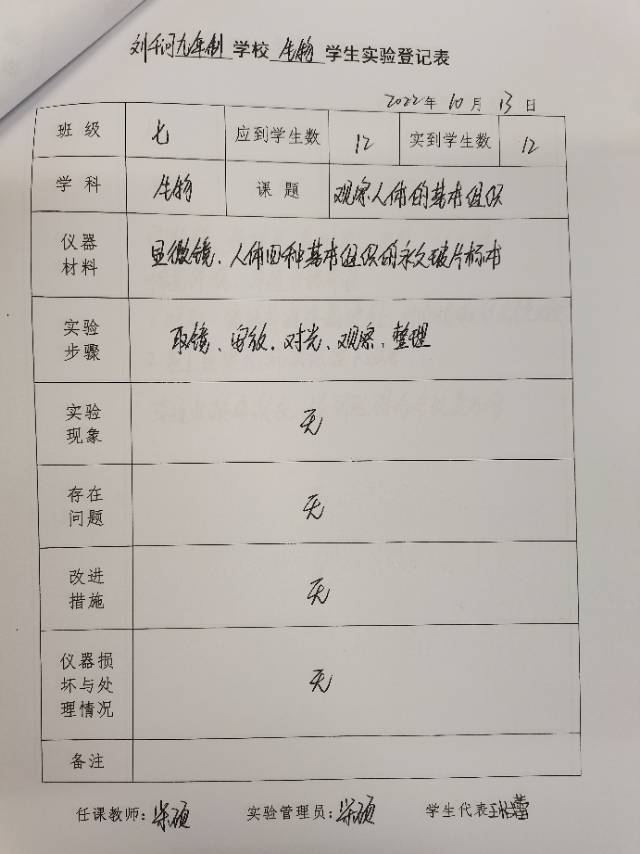 刘千河九年制学校生物学生实验登记表
2022年10月13日
班级 七 应到学生数 12 实到学生数 12
学科 生物 课题 观察人体的基本组织
仪器
材料
显微镜、人体四种基本组织的永久玻片标本
实验
步骤
取镜、安放、对光、观察、整理
实验
现象
无
存在
问题
无
改进
措施
无
仪器损
坏与处
理情况
无
备注
任课教师: 硕 实验管理员: 硕 学生代表 王